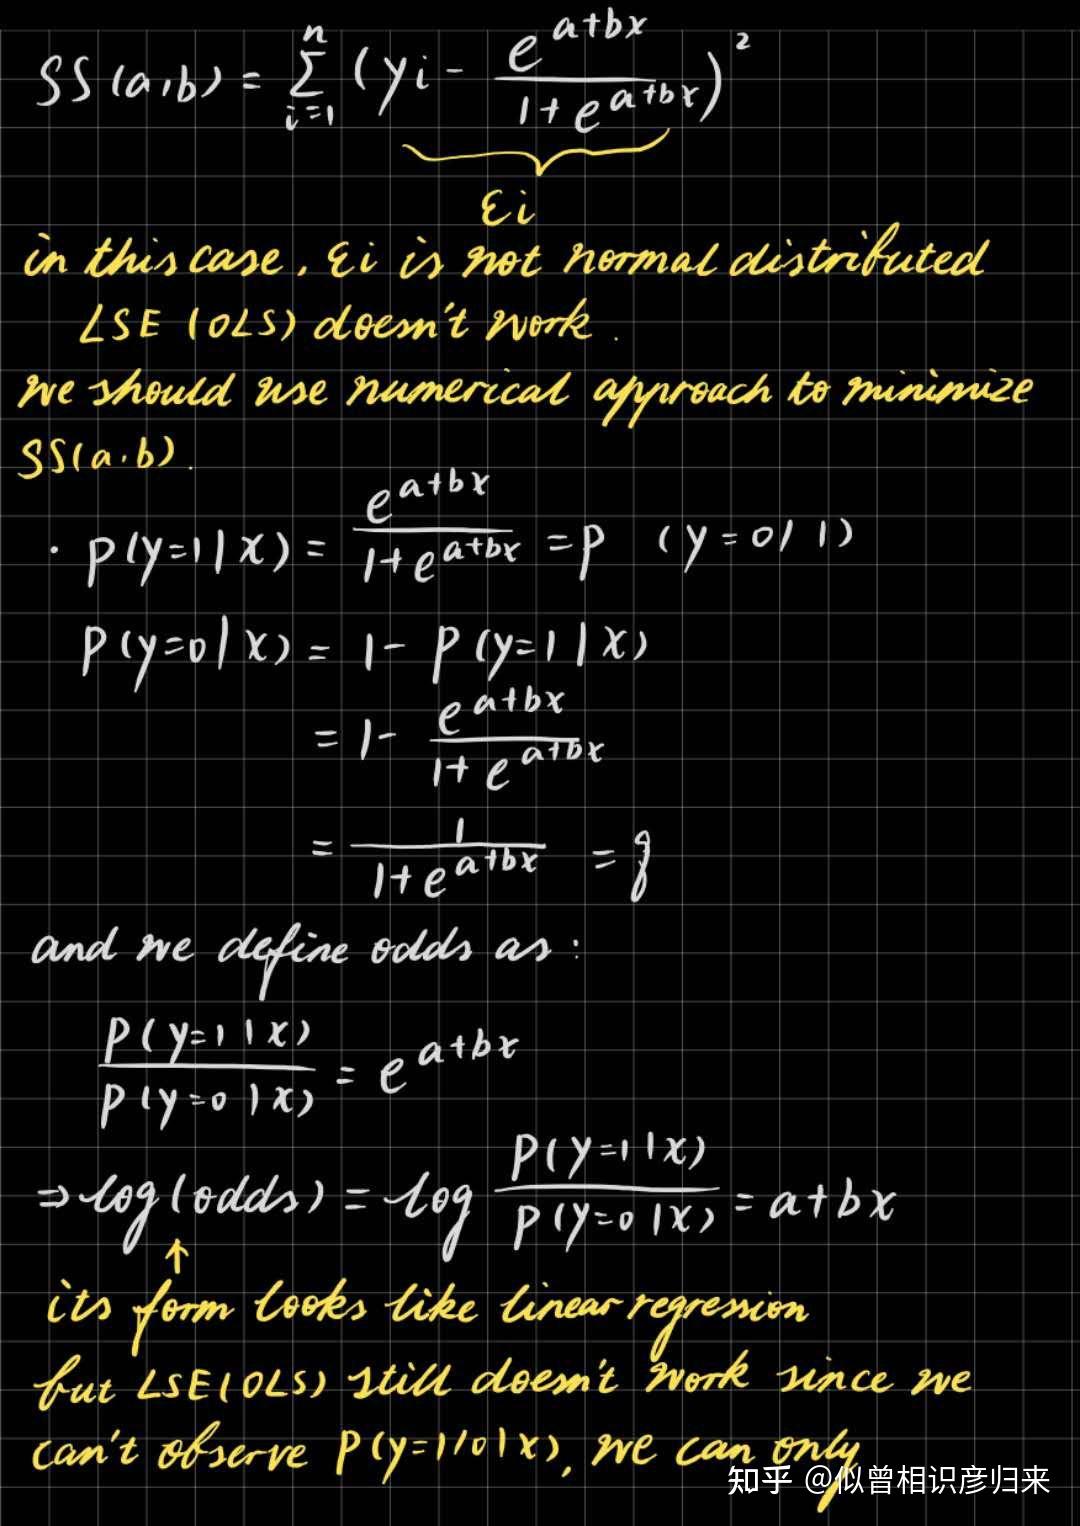 SS(a,b) = Σ_{i=1}^{n} (yi - e^{a+bx} / (1+e^{a+bx}))²
εi
in this case, εi is not normal distributed
LSE (OLS) doesn't work.
we should use numerical approach to minimize
SS(a.b).
· P(y=1|x) = e^{a+bx} / (1+e^{a+bx}) = p (y=0/1)
P(y=0|x) = 1- P(y=1|x)
= 1- e^{a+bx} / (1+e^{a+bx})
= 1 / (1+e^{a+bx}) = q
and we define odds as:
P(y=1|x) / P(y=0|x) = e^{a+bx}
⇒ log(odds) = log P(y=1|x) / P(y=0|x) = a+bx
↑
its form looks like linear regression
but LSE(OLS) still doesn't work since we
can't observe P(y=1/0|x), we can only
知乎 @似曾相识彦归来